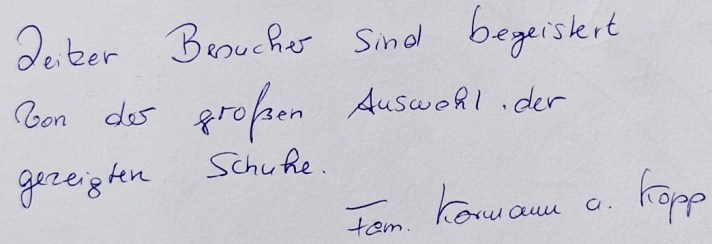 Besucher sind begeistert
von der großen Auswahl der
gezeigten Schuhe.
Fam. Kormann u. Kopp